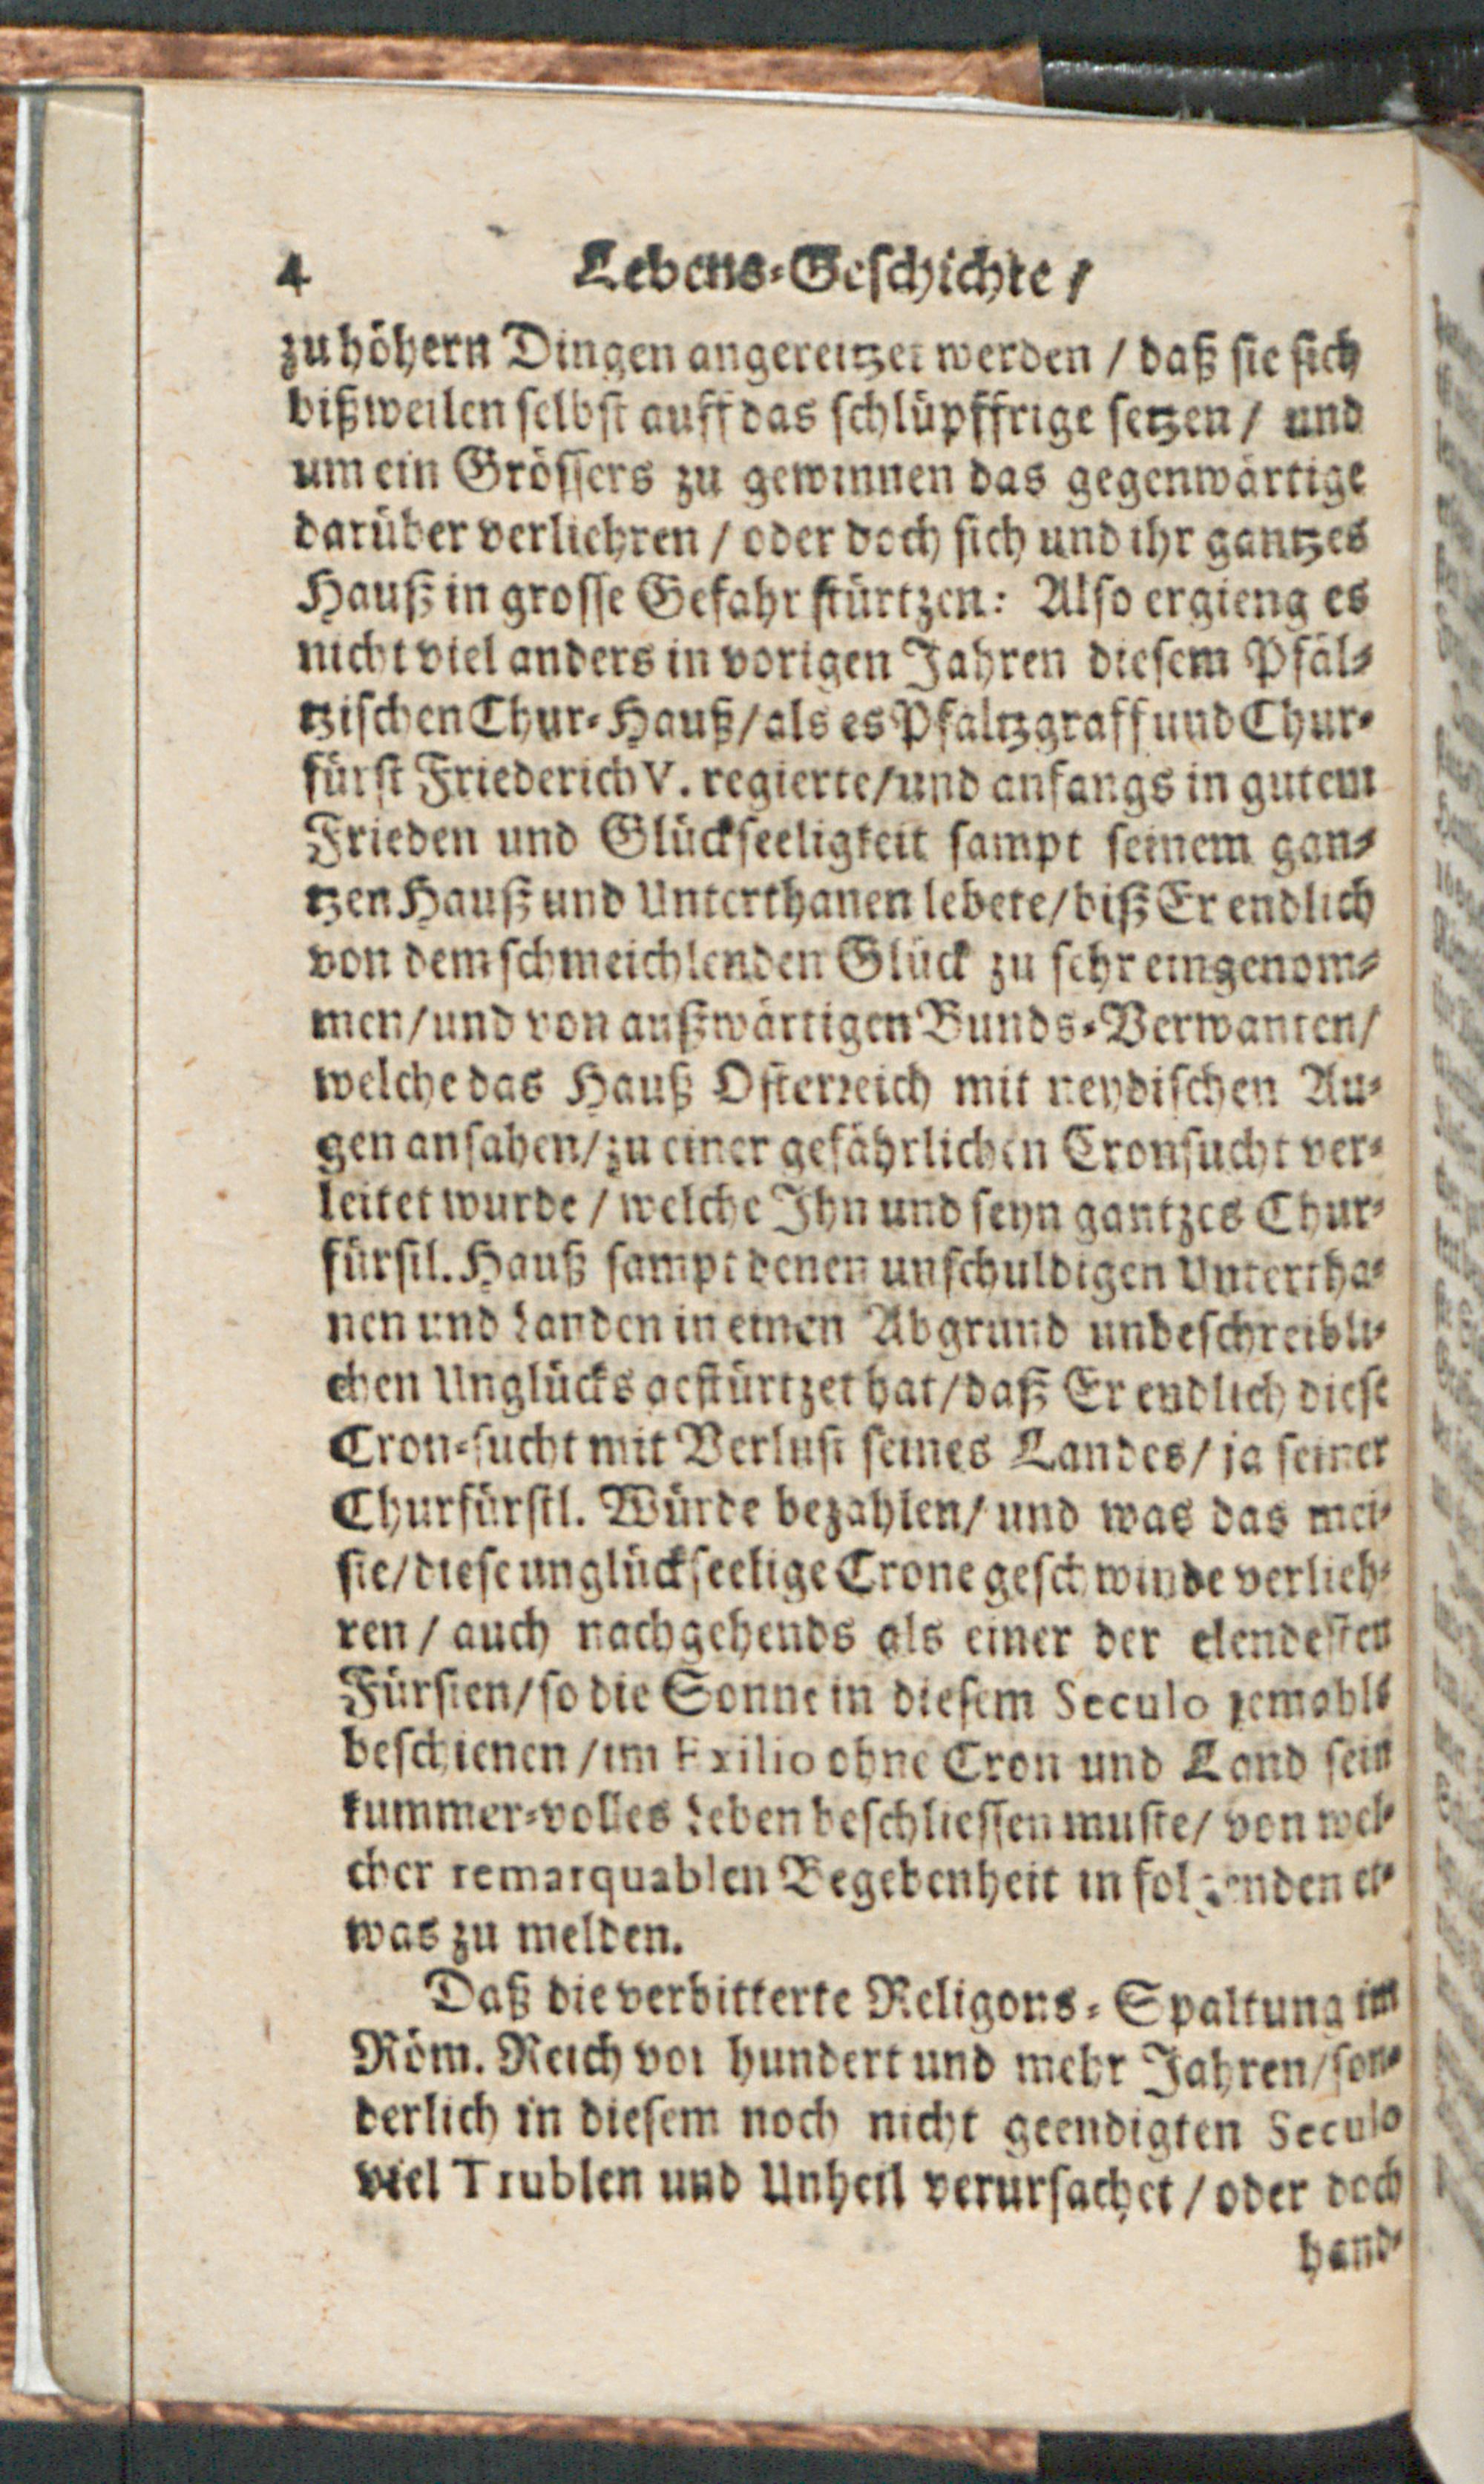 4 Lebens-Geschichte /
zu höhern Dingen angereitzet werden / daß sie sich
bißweilen selbst auff das schlüpffrige setzen / und
um ein Grössers zu gewinnen das gegenwärtige
darüber verliehren / oder doch sich und ihr gantzes
Hauß in grosse Gefahr stürtzen: Also ergieng es
nicht viel anders in vorigen Jahren diesem Pfäl-
tzischen Chur-Hauß / als es Pfaltzgraff und Chur-
fürst Friederich V. regierte / und anfangs in gutem
Frieden und Glückseeligkeit sampt seinem gan-
tzen Hauß und Unterthanen lebete / biß Er endlich
von dem schmeichlenden Glück zu sehr eingenom-
men / und von außwärtigen Bunds-Verwanten /
welche das Hauß Osterreich mit neydischen Au-
gen ansahen / zu einer gefährlichen Cronsucht ver-
leitet wurde / welche Ihn und seyn gantzes Chur-
fürstl. Hauß sampt denen unschuldigen Untertha-
nen und Landen in einen Abgrund unbeschreibli-
chen Unglücks gestürtzet hat / daß Er endlich diese
Cron-sucht mit Verlust seines Landes / ja seiner
Churfürstl. Würde bezahlen / und was das mei-
ste / diese unglückseelige Crone geschwinde verlieh-
ren / auch nachgehends als einer der elendesten
Fürsten / so die Sonne in diesem Seculo jemahls
beschienen / im Exilio ohne Cron und Land sein
kummer-volles Leben beschliessen muste / von wel-
cher remarquablen Begebenheit in folgenden et-
was zu melden.
Daß die verbitterte Religons-Spaltung im
Röm. Reich vor hundert und mehr Jahren / son-
derlich in diesem noch nicht geendigten Seculo
viel Trublen und Unheil verursachet / oder doch
hand-